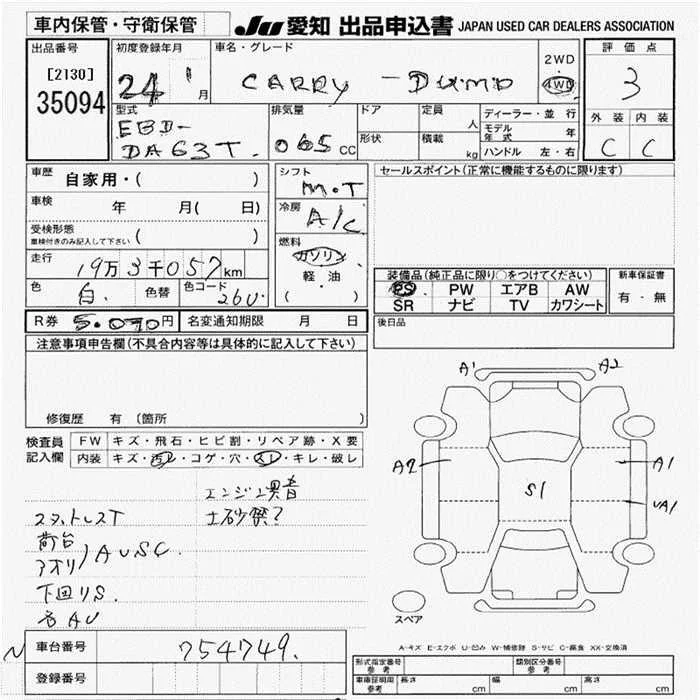 車内保管・守衛保管
JU 愛知 出品申込書 JAPAN USED CAR DEALERS ASSOCIATION
出品番号
[2130]
35094
初度登録年月
24 1月
車名・グレード
CARRY - DUMP
2WD
4WD
評価点
3
外装 内装
C C
型式
EBD-
DA63T.
排気量
065 CC
ドア
形状
定員 人
積載 kg
ディーラー・並行
モデル年式 年
ハンドル 左・右
車歴 自家用・( )
車検 年 月( 日)
受検形態
車検付きのみ記入して下さい ( )
走行 19万3千057km
色 白. 色替 色コード 26U
シフト
M・T
冷房
A/C
燃料
ガソリン
軽・油
( )
セールスポイント(正常に機能するものに限ります)
装備品(純正品に限り○をつけてください)
PS PW エアB AW
SR ナビ TV カワシート
新車保証書
有・無
R券 5.070円 名変通知期限 月 日
後日品
注意事項申告欄(不具合内容等は具体的に記入して下さい)
修復歴 有 〔箇所 〕
検査員
記入欄
FW キズ・飛石・ヒビ割・リペア跡・X要
内装 キズ・汚レ・コゲ・穴・スレ・キレ・破レ
エンジン異音
土砂禁?
スタットレスT
荷台
アオリ)AUSC.
下回りS.
各AU
A1 A2
A2 S1 A1
UA1
スペア
A-キズ E-エクボ U-凹み W-補修跡 S-サビ C-腐食 XX-交換済
車台番号 754749.
登録番号
形式指定番号
参考
類別区分番号
参考
車庫証明用
参考
長さ cm 幅 cm 高さ cm